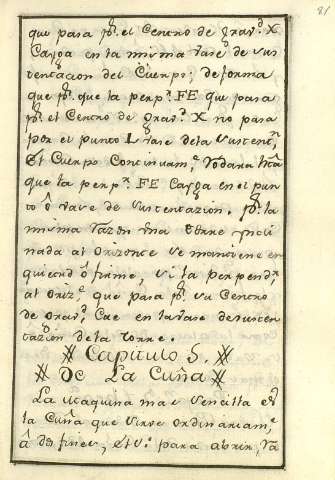 81
que pasa pr. el Centro de Gravd. X
Carga en la misma vase de sus
tentacion del Cuerpo; de forma
que pr. que la perpr. FE que pasa
pr. el Centro de Gravd. X no pasa
por el punto L vase dela sustentn.
el Cuerpo Continuamte. rodara hta.
que la perpr. FE Carga en el pun
to ô vase de sustentazion. pr. la
misma razon una torre yncli
nada al orizonte se mantiene en
quietud ô firme, si la perpendr.
al orize. que pasa pr. su Centro
de Gravd. Cae en la vase desusten
tazion de la torre.
Capitulo 5.
De La Cuña
La maquina mas sencilla es
la Cuña que sirve ordinariamte.
â dos fines, el 1o. para abrir, ra